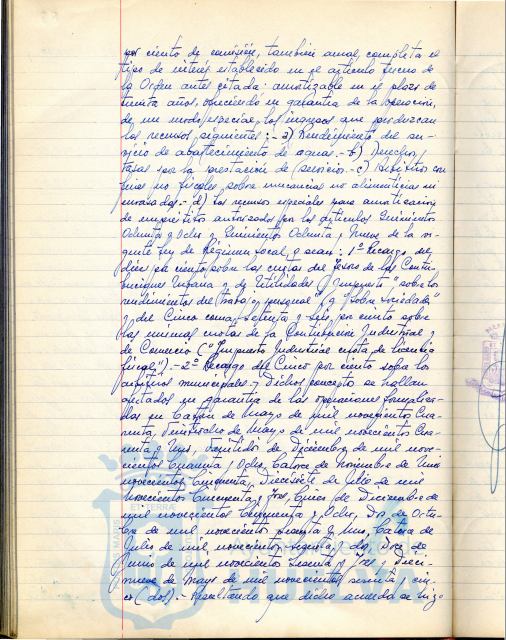 por ciento de comisión, también anual, completa el
tipo de interés establecido en el artículo tercero de
la Orden antes citada: amortizable en el plazo de
treinta años, ofreciendo en garantía de la operación,
de un modo especial, los ingresos que produzcan
los recursos siguientes: - a) Rendimiento del ser-
vicio de abastecimiento de aguas.- b) Derechos y
tasas por la prestación de servicios.- c) Arbitrios con
fines no fiscales sobre mercancías no alimenticias ni
envasadas.- d) Los recursos especiales para amortización
de empréstitos autorizados por los artículos Quinientos
Ochenta y Ocho y Quinientos Ochenta y Nueve de la vi-
gente Ley de Régimen Local, y sean: 1º Recargo del
diez por ciento sobre las cuotas del Tesoro de las Contri-
buciones Urbana y de Utilidades (Impuesto "sobre los
rendimientos del trabajo personal" y "sobre sociedades")
y del Cinco coma setenta y seis por ciento sobre
las mismas cuotas de la Contribución Industrial y
de Comercio ("Impuesto Industrial cuota de licencia
fiscal").- 2º Recargo del Cinco por ciento sobre los
arbitrios municipales.- Dichos conceptos se hallan
afectados en garantía de las operaciones formaliza-
das en Catorce de Mayo de mil novecientos Cua-
renta, Veintiocho de Mayo de mil novecientos Cua-
renta y Uno, Veintidós de Diciembre de mil nove-
cientos Cuarenta y Ocho, Catorce de Noviembre de mil
novecientos Cincuenta, Diecisiete de Julio de mil
novecientos Cincuenta y Tres, Cinco de Diciembre de
mil novecientos Cincuenta y Ocho, Dos de Octu-
bre de mil novecientos sesenta y uno, Catorce de
Julio de mil novecientos sesenta y dos, Doce de
Junio de mil novecientos Sesenta y Tres y Dieci-
nueve de Mayo de mil novecientos sesenta y cin-
co (dos).- Resultando que dicho acuerdo se hizo